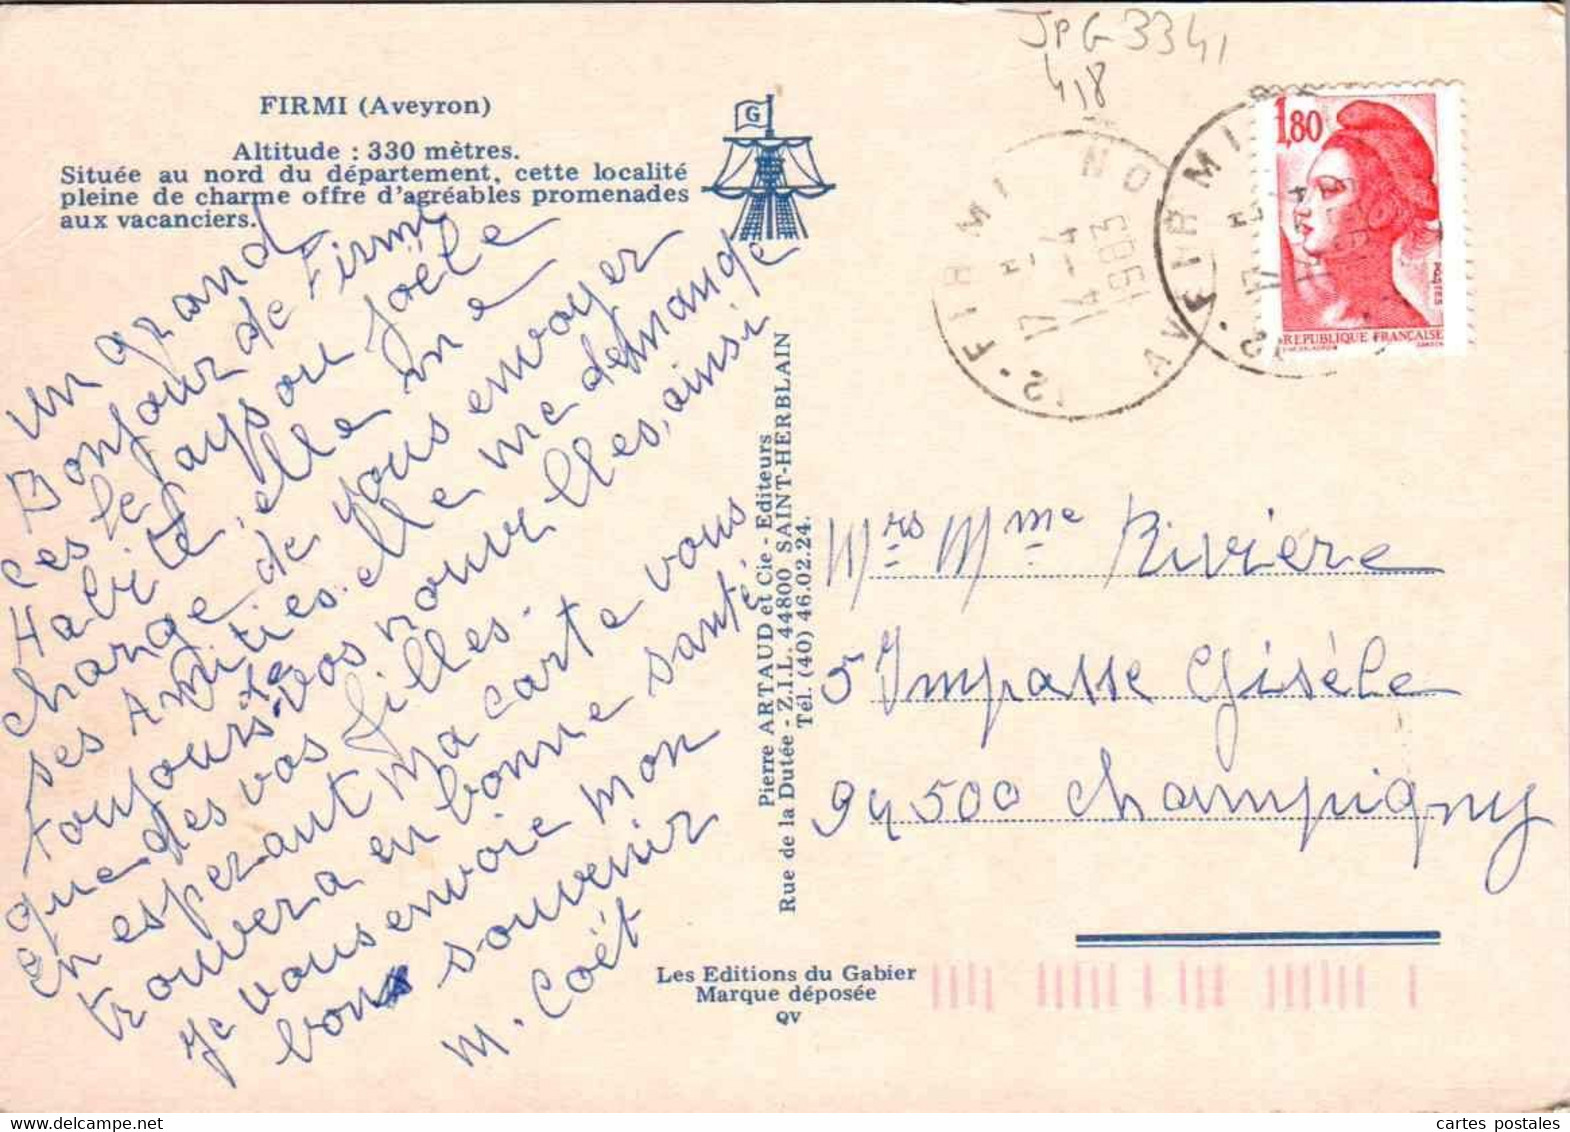 JPG 3341
418
FIRMI (Aveyron)
Altitude : 330 mètres.
Située au nord du département, cette localité
pleine de charme offre d'agréables promenades
aux vacanciers.
G
Un grand
Bonjour de Firmi
ces le pays ou Joële
Habite, elle me
charge de vous envoyer
ses Amitiés. elle me demande
toujours de vos nouvelles, ainsi
que des vos filles.
En esperant Ma carte vous
trouvera en bonne santé.
Je vous envoie mon
bon souvenir
M. Coët
Pierre ARTAUD et Cie - Editeurs
Rue de la Dutée - Z.I.L. 44800 SAINT-HERBLAIN
Tél. (40) 46.02.24.
Les Editions du Gabier
Marque déposée
QV
FIRMI
17 H
14 - 4
1983
12 AVEYRON
FIRMI
17 H
12
1,80
POSTES
REPUBLIQUE FRANÇAISE
Mrs Mme Rivière
5 Impasse Gisèle
94500 Champigny
cartes postales